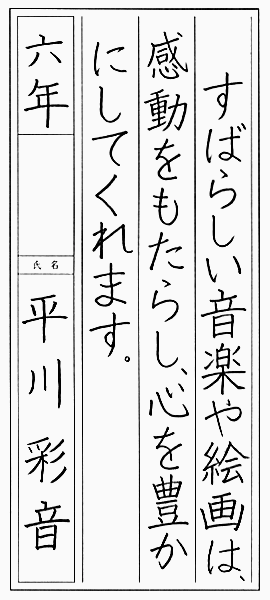 すばらしい音楽や絵画は、
感動をもたらし、心を豊か
にしてくれます。
六年
氏名
平川彩音